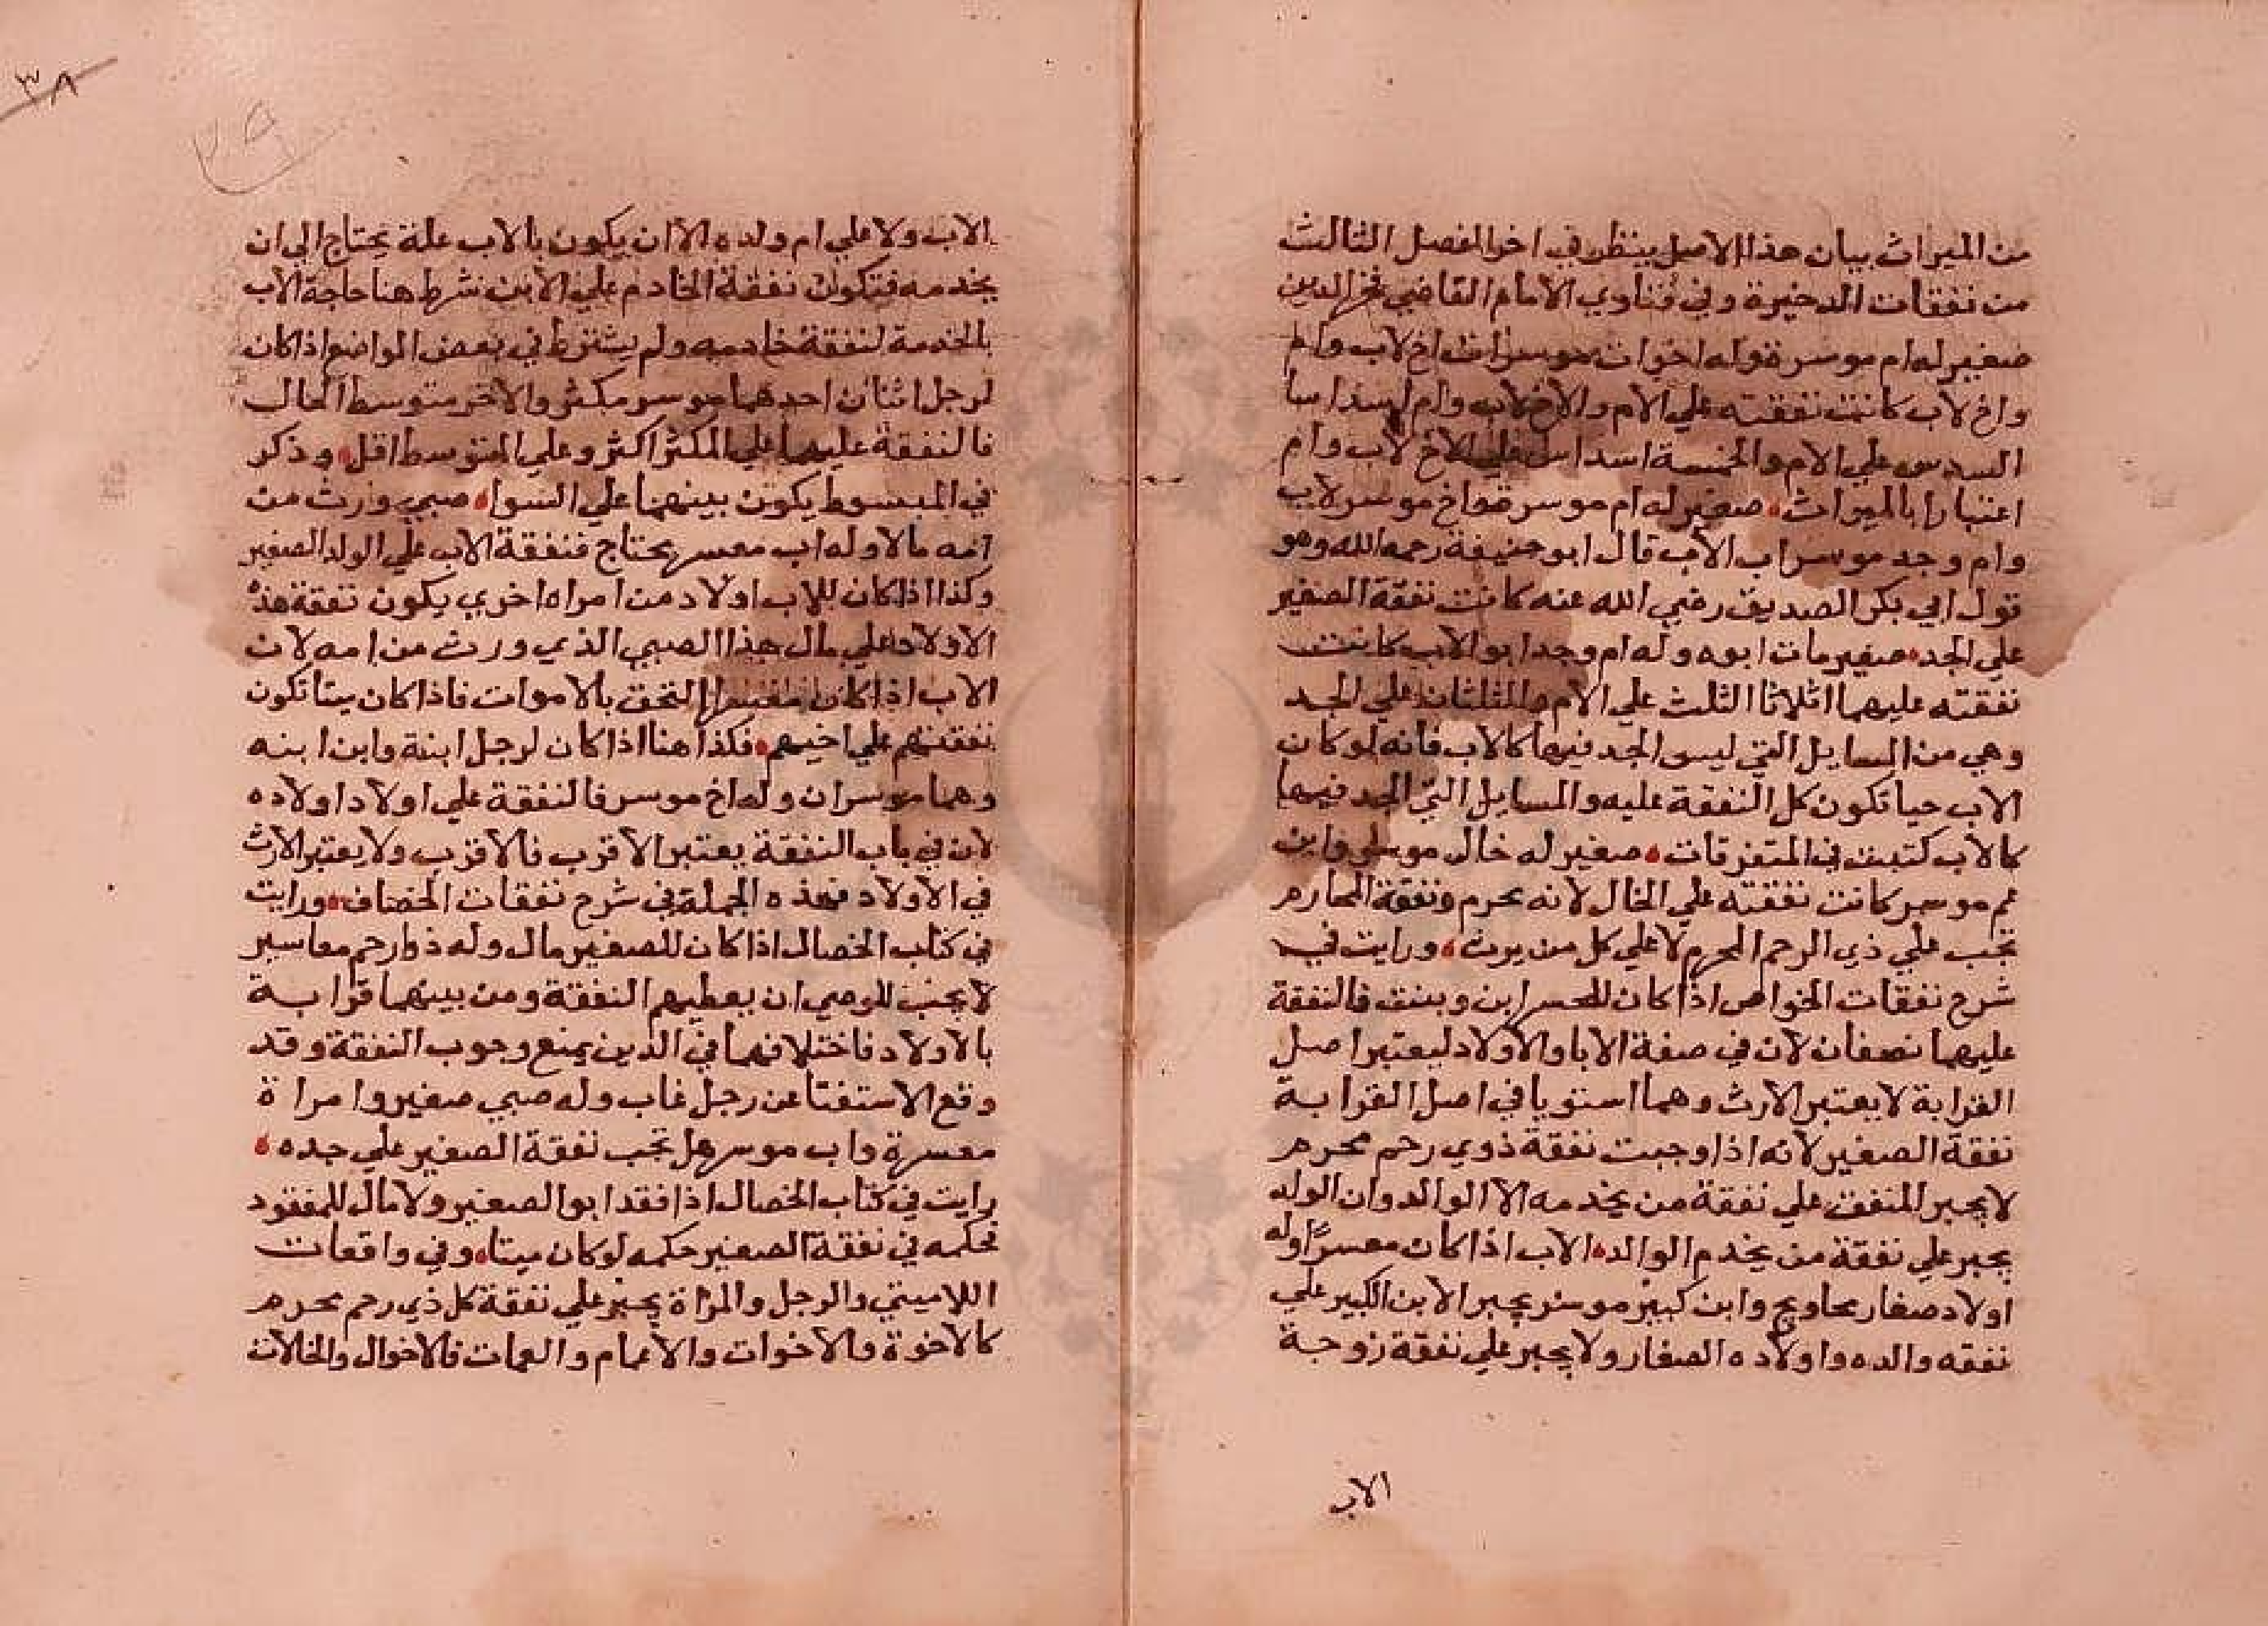 من الميراث بيان هذا الاصل ينظر في اخر الفصل الثالث
من نفقات الدخيرة وفي فتاوي الامام القاضي فخر الدين
صغير له ام موسرة وله اخوات موسرات اخ لاب وام
واخ لاب كانت نفقته علي الام والاخ لاب وام اسداسا
السدس علي الام والخمسة اسداس علي الاخ لاب وام
اعتبارا بالميراث صغير له ام موسرة واخ موسر لاب
وام وجد موسر اب الاب قال ابو حنيفة رحمه الله وهو
قول ابي بكر الصديق رضي الله عنه كانت نفقة الصغير
علي الجد صغير مات ابوه وله ام وجد ابو الاب كانت
نفقته عليهما اثلاثا الثلث علي الام والثلثان علي الجد
وهي من المسايل التي ليس الجد فيها كالاب فانه لو كان
الاب حيا تكون كل النفقة عليه والمسايل التي الجد فيها
كالاب كتبت في المتفرقات صغير له خال موسر وابن
عم موسر كانت نفقته علي الخال لانه محرم ونفقة المحارم
تجب علي ذي الرحم المحرم لا علي كل من يرث ورايت في
شرح نفقات الخواص اذا كان للمعسر ابن وبنت فالنفقة
عليهما نصفان لان في صفة الابا والاولاد ليعتبر اصل
القرابة لا يعتبر الارث وهما استويا في اصل القرابة
نفقة الصغير لانه اذا وجبت نفقة ذوي رحم محرم
لا يجبر المنفق علي نفقة من يخدمه الا الوالد وان الولد
يجبر علي نفقة من يخدم الوالد الاب اذا كان معسرا وله
اولاد صغار محاويج وابن كبير موسر يجبر الابن الكبير علي
نفقه والده واولاده الصغار ولا يجبر علي نفقة زوجة
الاب
٣٨
الاب ولا علي ام ولده الا ان يكون بالاب علة يحتاج الي ان
يخدمه فتكون نفقة الخادم علي الابن شرط هنا حاجة الاب
بالخدمة لنفقة خادمه ولم يشترط في بعض المواضع اذا كان
لرجل اثنان احدهما موسر مكثر والاخر متوسط الحال
فالنفقة عليهما علي المكثر اكثر وعلي المتوسط اقل وذكر
في المبسوط يكون بينهما علي السوا صبي ورث من
امه مالا وله اب معسر يحتاج فنفقة الاب علي الولد الصغير
وكذا اذا كان للاب اولاد من امراه اخري يكون نفقة هذه
الاولاد علي مال هذا الصبي الذي ورث من امه لان
الاب اذا كان التحق بالاموات فاذا كان ميتا تكون
نفقتهم علي اخيهم فكذا هنا اذا كان لرجل ابنة وابن ابنه
وهما موسران وله اخ موسر فالنفقة علي اولاد اولاده
لان في باب النفقة يعتبر الاقرب فالاقرب ولا يعتبر الارث
في الاولاد فهذه الجملة في شرح نفقات الخصاف ورايت
في كتاب الخصال اذا كان للصغير مال وله ذوا رحم معاسير
لا يجب للوصي ان يعطيهم النفقة ومن بينهما قرابة
بالاولاد فاختلافهما في الدين يمنع وجوب النفقة وقد
وقع الاستفتا عن رجل غاب وله صبي صغير وامراة
معسرة واب موسر هل تجب نفقة الصغير علي جده
رايت في كتاب الخصال اذا فقد ابو الصغير ولا مال للمفقود
فحكمه في نفقة الصغير حكمه لو كان ميتا وفي واقعات
اللاميتي والرجل والمراة يجبر علي نفقة كل ذي رحم محرم
كالاخوة والاخوات والاعمام والعمات فالاخوال والخالات